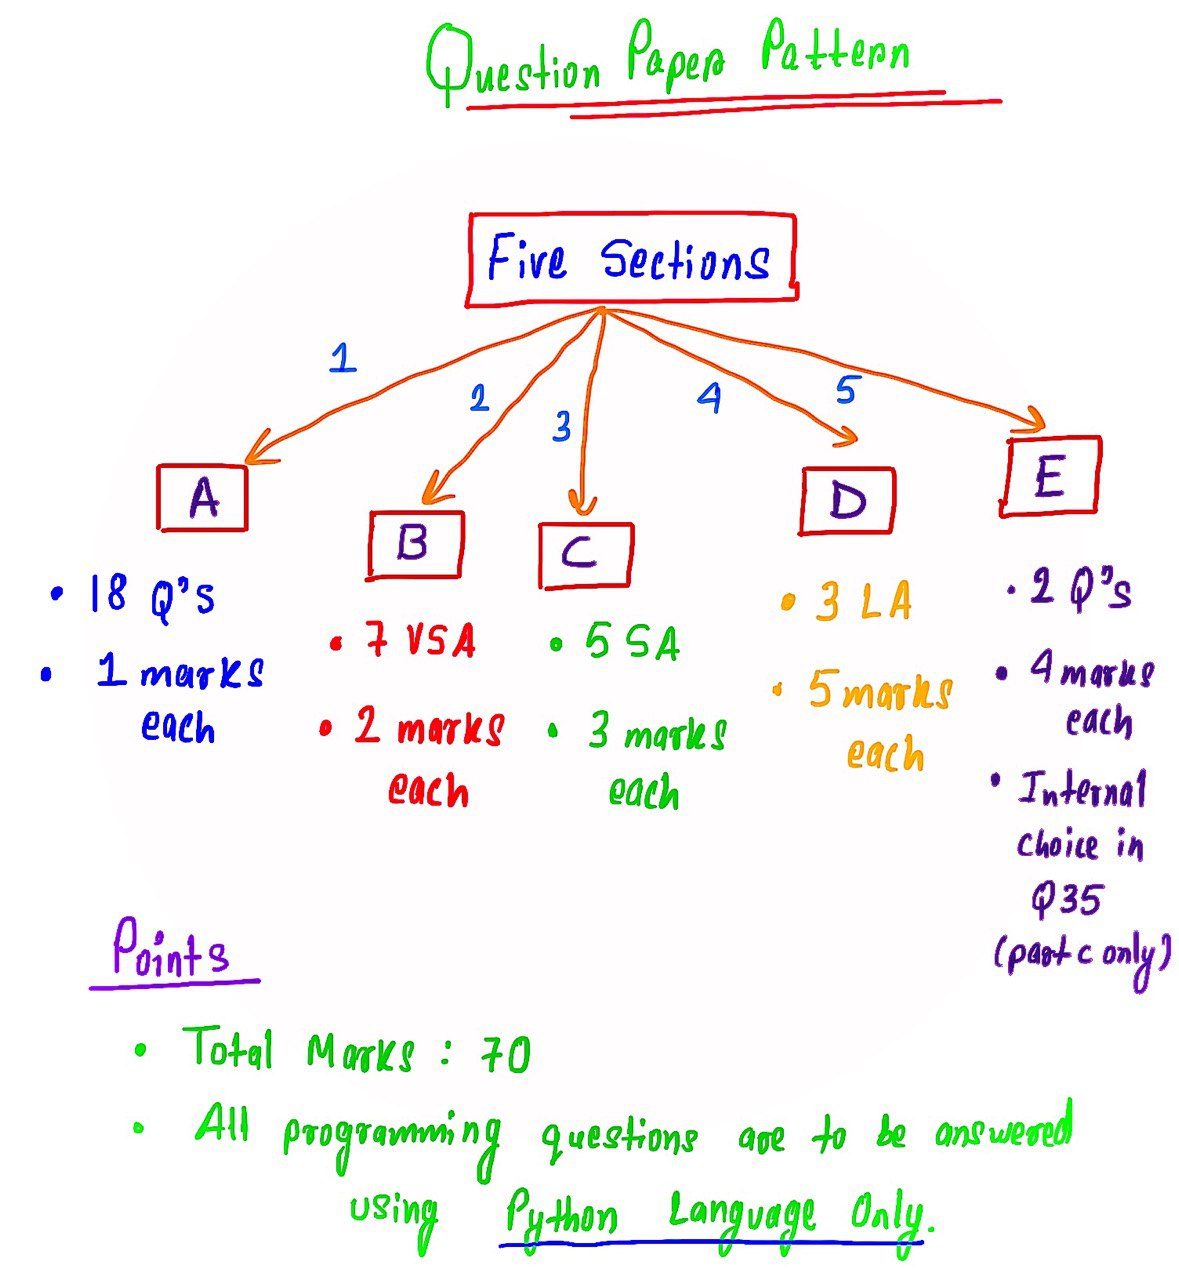 Question Paper Pattern
Five Sections
1
2
3
4
5
A
• 18 Q's
• 1 marks
each
B
• 7 VSA
• 2 marks
each
C
• 5 SA
• 3 marks
each
D
• 3 LA
• 5 marks
each
E
• 2 Q's
• 4 marks
each
• Internal
choice in
Q35
(part c only)
Points
• Total Marks : 70
• All programming questions are to be answered
using Python Language Only.